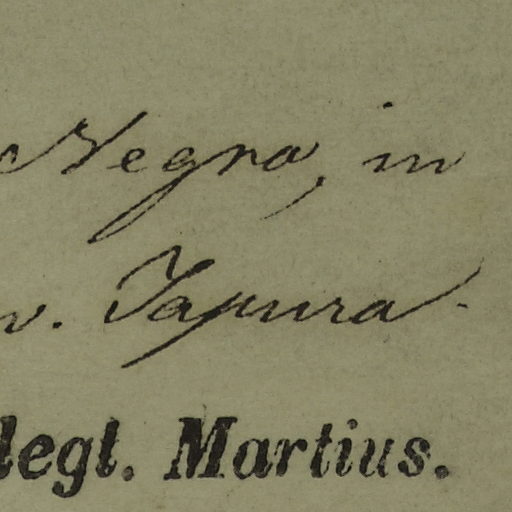 Negro, in
v. Japura.
legt. Martius.